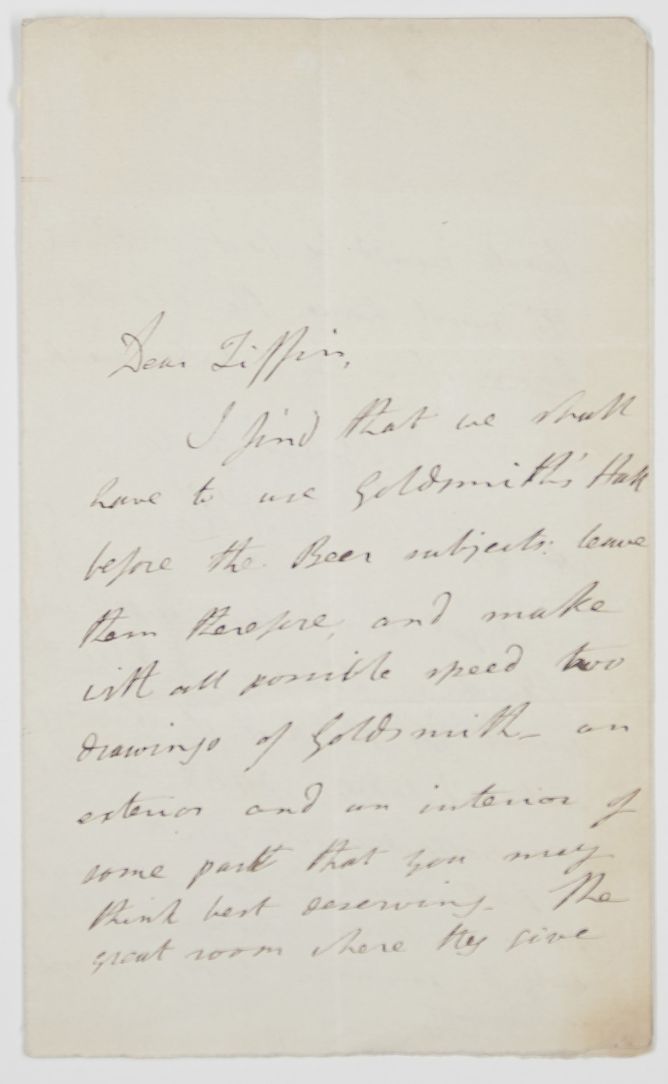 Dear Tiffin,
I find that we shall
have to use Goldsmith's Hall
before the Beer subjects: leave
them therefore, and make
with all possible speed two
drawings of Goldsmith - an
exterior and an interior of
some part that you may
think best deserving. The
great room where they give